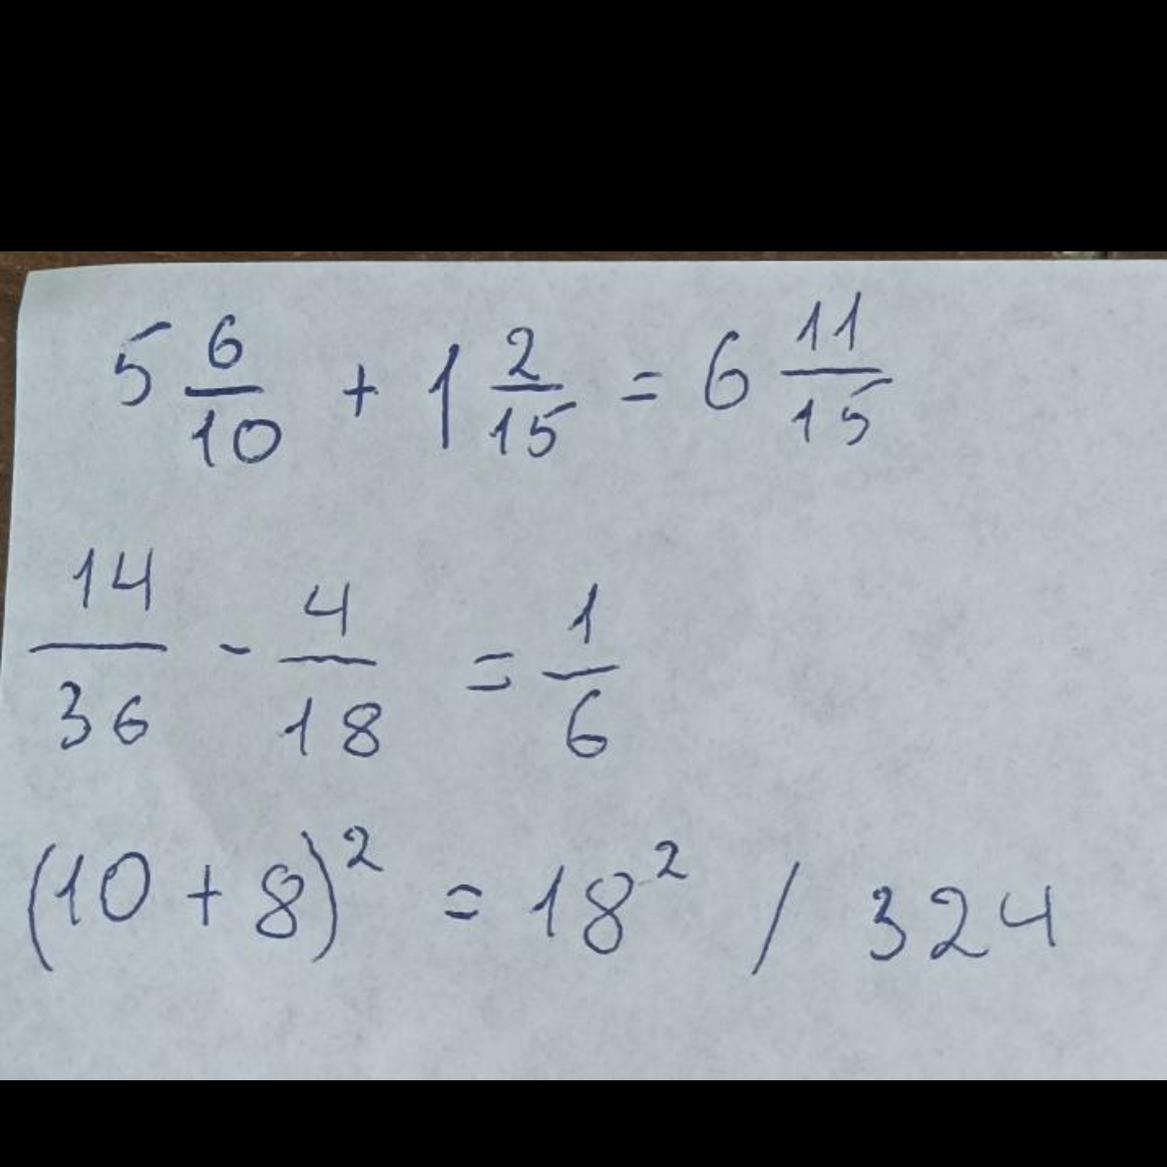 5 6/10 + 1 2/15 = 6 11/15
14/36 - 4/18 = 1/6
(10 + 8)² = 18² / 324